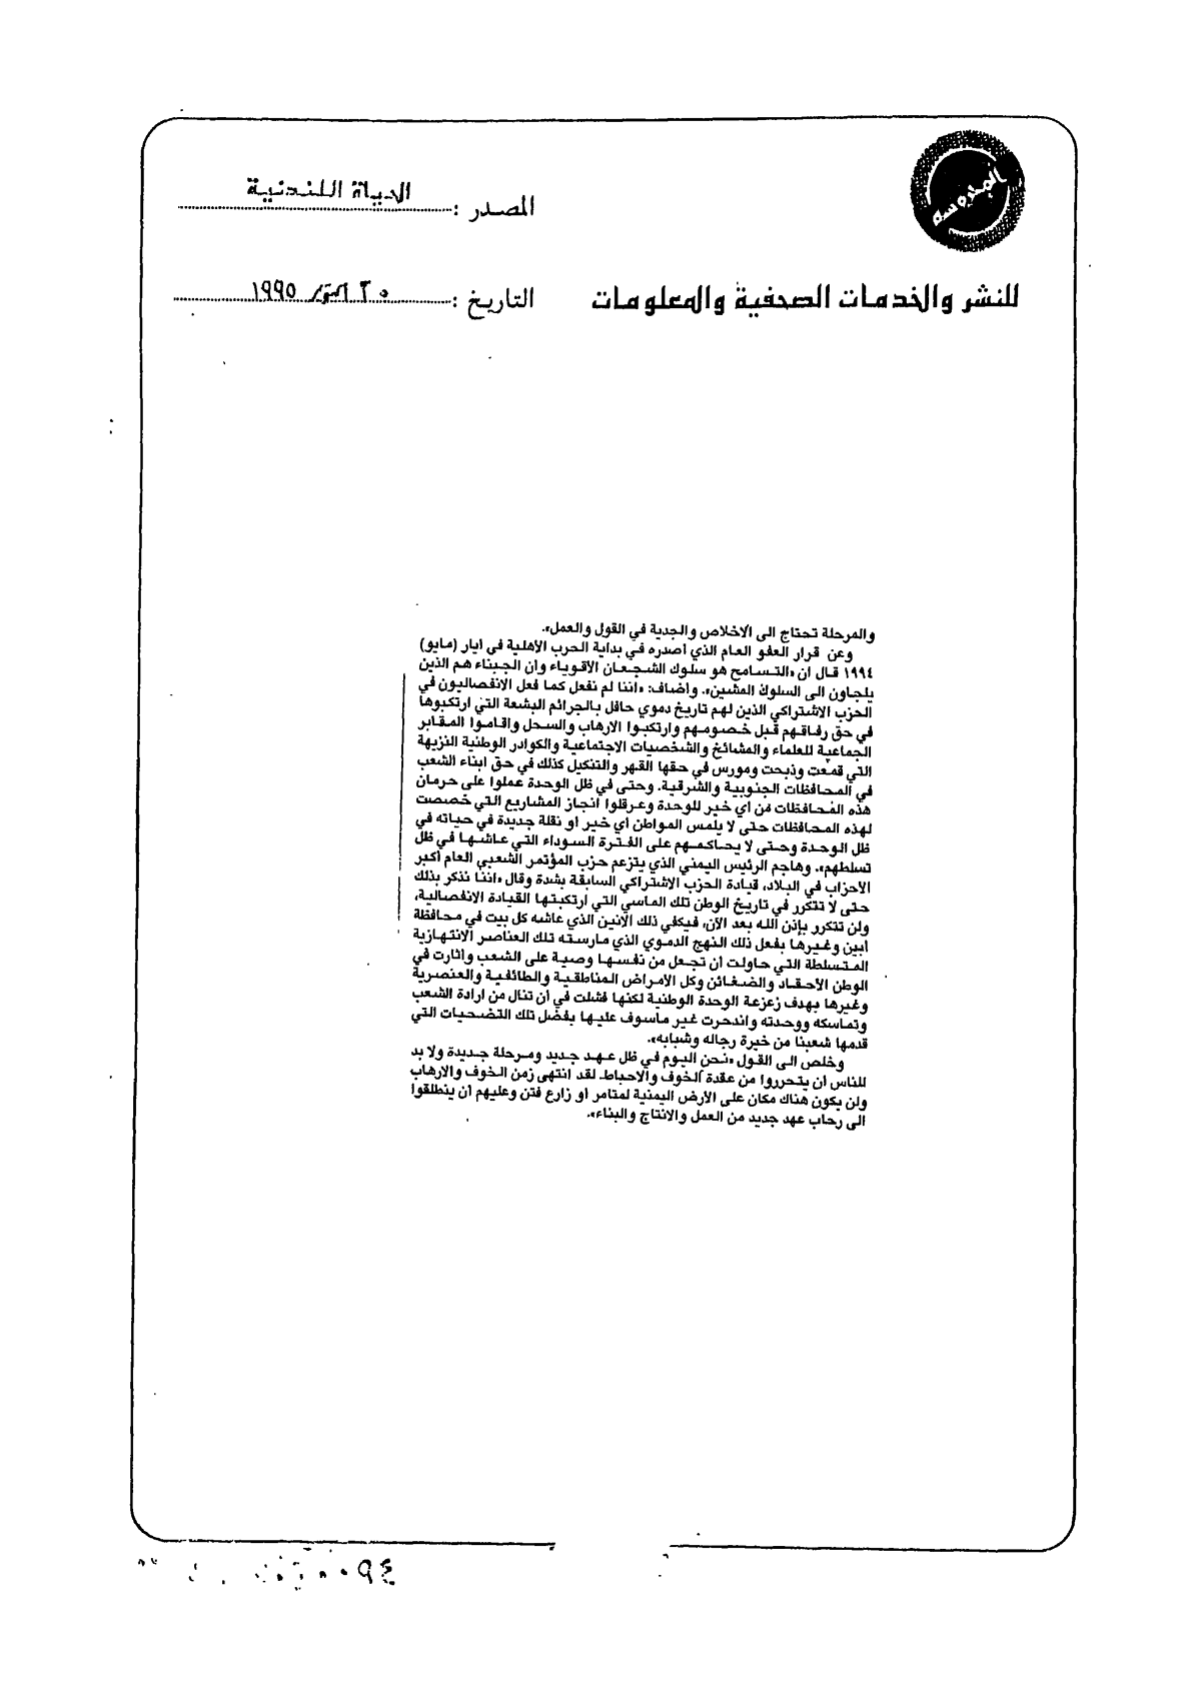 المحروسة
المصدر : الحياة اللندنية
للنشر والخدمات الصحفية والمعلومات
التاريخ : ٢٠ اكتوبر ١٩٩٥
والمرحلة تحتاج الى الاخلاص والجدية في القول والعمل».
وعن قرار العفو العام الذي اصدره في بداية الحرب الأهلية في ايار (مايو)
١٩٩٤ قال ان «التسامح هو سلوك الشجعان الأقوياء وان الجبناء هم الذين
يلجاون الى السلوك المشين». واضاف: «اننا لم نفعل كما فعل الانفصاليون في
الحزب الاشتراكي الذين لهم تاريخ دموي حافل بالجرائم البشعة التي ارتكبوها
في حق رفاقهم قبل خصومهم وارتكبوا الارهاب والسحل واقاموا المقابر
الجماعية للعلماء والمشائخ والشخصيات الاجتماعية والكوادر الوطنية النزيهة
التي قمعت وذبحت ومورس في حقها القهر والتنكيل كذلك في حق ابناء الشعب
في المحافظات الجنوبية والشرقية. وحتى في ظل الوحدة عملوا على حرمان
هذه المحافظات من اي خير للوحدة وعرقلوا انجاز المشاريع التي خصصت
لهذه المحافظات حتى لا يلمس المواطن اي خير او نقلة جديدة في حياته في
ظل الوحدة وحتى لا يحاكمهم على الفترة السوداء التي عاشها في ظل
تسلطهم». وهاجم الرئيس اليمني الذي يتزعم حزب المؤتمر الشعبي العام أكبر
الأحزاب في البلاد، قيادة الحزب الاشتراكي السابقة بشدة وقال «اننا نذكر بذلك
حتى لا تتكرر في تاريخ الوطن تلك الماسي التي ارتكبتها القيادة الانفصالية،
ولن تتكرر بإذن الله بعد الآن، فيكفي ذلك الأنين الذي عاشه كل بيت في محافظة
ابين وغيرها بفعل ذلك النهج الدموي الذي مارسته تلك العناصر الانتهازية
المتسلطة التي حاولت ان تجعل من نفسها وصية على الشعب واثارت في
الوطن الأحقاد والضغائن وكل الأمراض المناطقية والطائفية والعنصرية
وغيرها بهدف زعزعة الوحدة الوطنية لكنها فشلت في أن تنال من ارادة الشعب
وتماسكه ووحدته واندحرت غير ماسوف عليها بفضل تلك التضحيات التي
قدمها شعبنا من خيرة رجاله وشبابه».
وخلص الى القول «نحن اليوم في ظل عهد جديد ومرحلة جديدة ولا بد
للناس أن يتحرروا من عقدة الخوف والاحباط. لقد انتهى زمن الخوف والارهاب
ولن يكون هناك مكان على الأرض اليمنية لمتامر او زارع فتن وعليهم أن ينطلقوا
الى رحاب عهد جديد من العمل والانتاج والبناء».